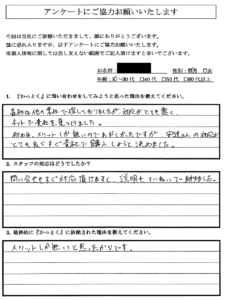 アンケートにご協力お願いいたします
今回は当社にご依頼いただきまして、誠にありがとうございます。
誠に恐れ入りますが、以下アンケートにご協力お願いいたします。
お名前
性別:男 女
1.『かっとく』に問い合わせをしてみようと思った理由を教えてください。
最初は他の業社で探しておりましたが、対応がとても悪く、
ネットで貴社を見つけました。
初めは、メリットしか無いのであやしかったですが、
とても良くすぐ貴社で購入しようと決めました。
2.スタッフの対応はどうでしたか?
問い合せもすぐ対応頂けますし、説明もていねいで助かりました。
3.最終的に『かっとく』に依頼された理由を教えてください。
メリットしか無いと思ったからです。